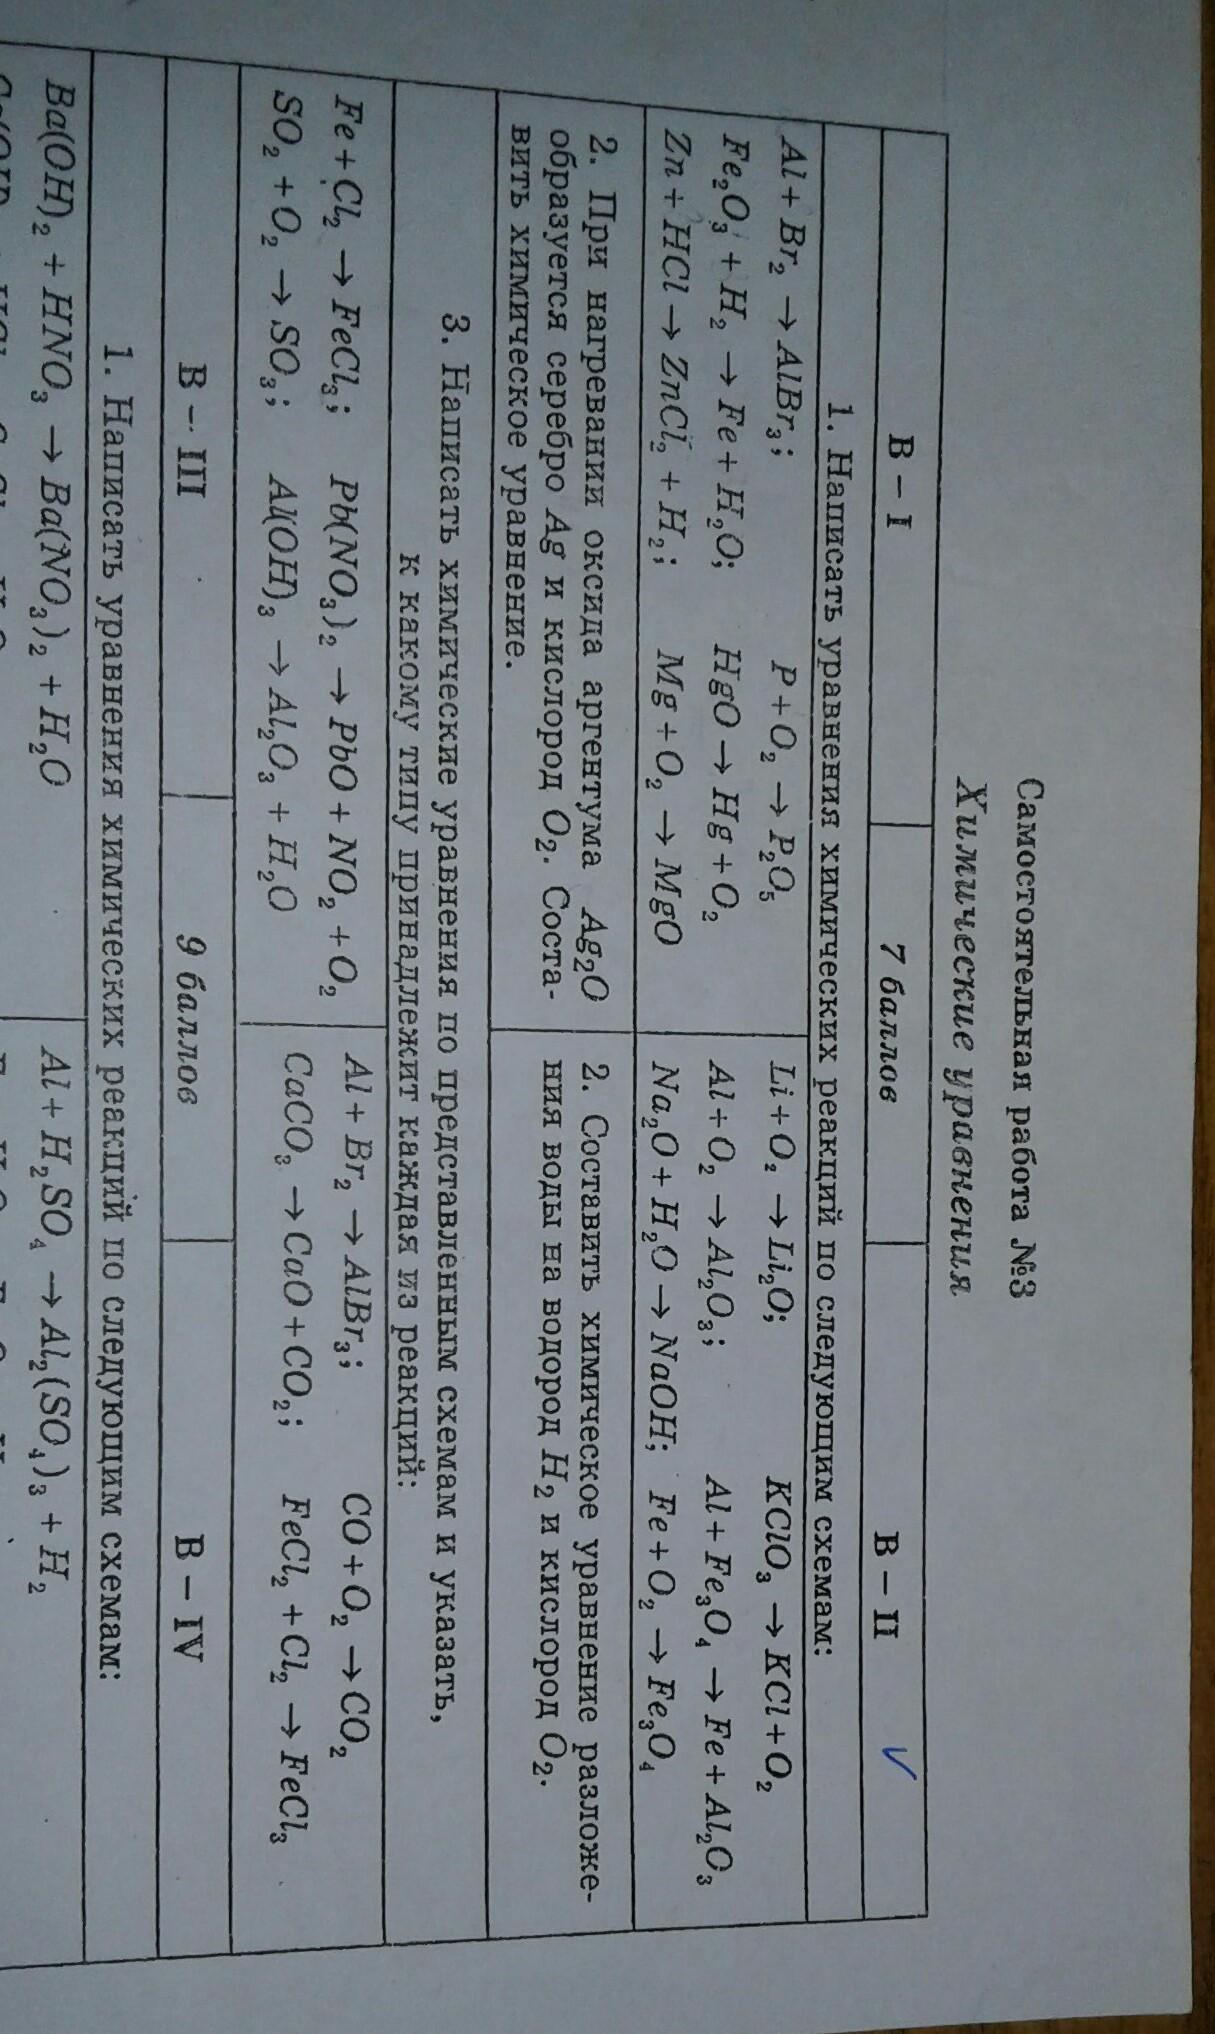 Самостоятельная работа №3
Химические уравнения
В – I
7 баллов
В – II
1. Написать уравнения химических реакций по следующим схемам:
Al + Br₂ → AlBr₃; P + O₂ → P₂O₅
Fe₂O₃ + H₂ → Fe + H₂O; HgO → Hg + O₂
Zn + HCl → ZnCl₂ + H₂; Mg + O₂ → MgO
Li + O₂ → Li₂O; KClO₃ → KCl + O₂
Al + O₂ → Al₂O₃; Al + Fe₃O₄ → Fe + Al₂O₃
Na₂O + H₂O → NaOH; Fe + O₂ → Fe₃O₄
2. При нагревании оксида аргентума Ag₂O
образуется серебро Ag и кислород O₂. Соста-
вить химическое уравнение.
2. Составить химическое уравнение разложе-
ния воды на водород H₂ и кислород O₂.
3. Написать химические уравнения по представленным схемам и указать,
к какому типу принадлежит каждая из реакций:
Fe + Cl₂ → FeCl₃; Pb(NO₃)₂ → PbO + NO₂ + O₂
SO₂ + O₂ → SO₃; Al(OH)₃ → Al₂O₃ + H₂O
Al + Br₂ → AlBr₃; CO + O₂ → CO₂
CaCO₃ → CaO + CO₂; FeCl₂ + Cl₂ → FeCl₃
В – III
9 баллов
В – IV
1. Написать уравнения химических реакций по следующим схемам:
Ba(OH)₂ + HNO₃ → Ba(NO₃)₂ + H₂O
Al + H₂SO₄ → Al₂(SO₄)₃ + H₂